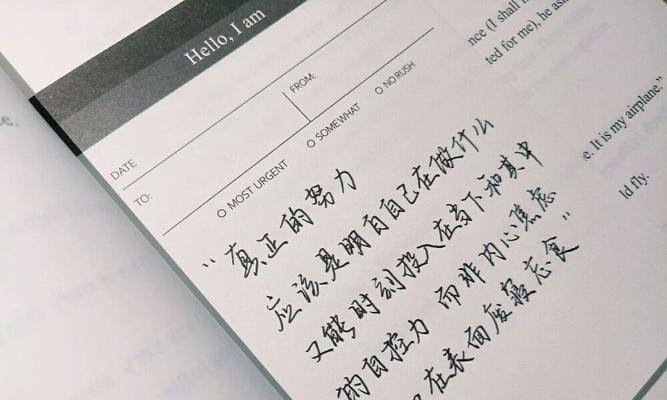 Hello, I am
FROM:
DATE
TO:
MOST URGENT
SOMEWHAT
NO RUSH
“真正的努力
应该是明白自己在做什么
又能时刻投入在当下和其中
的自控力 而非内心焦虑
在表面废寝忘食”
nce (I shall n
ted for me), he as
e. It is my airplane.”
ld fly.